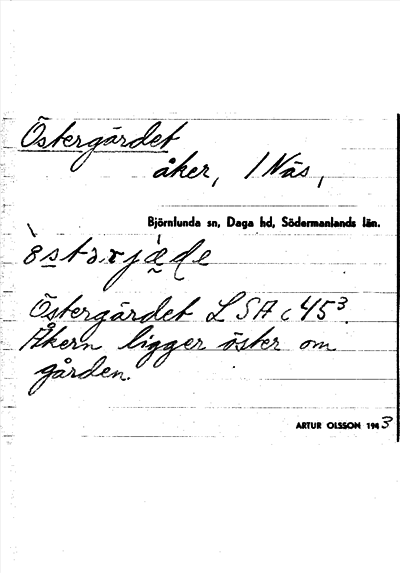 Östergärdet
åker, 1 Näs,
Björnlunda sn, Daga hd, Södermanlands län.
Östergärdet LSA c 45³.
Åkern ligger öster om
gården.
ARTUR OLSSON 1943